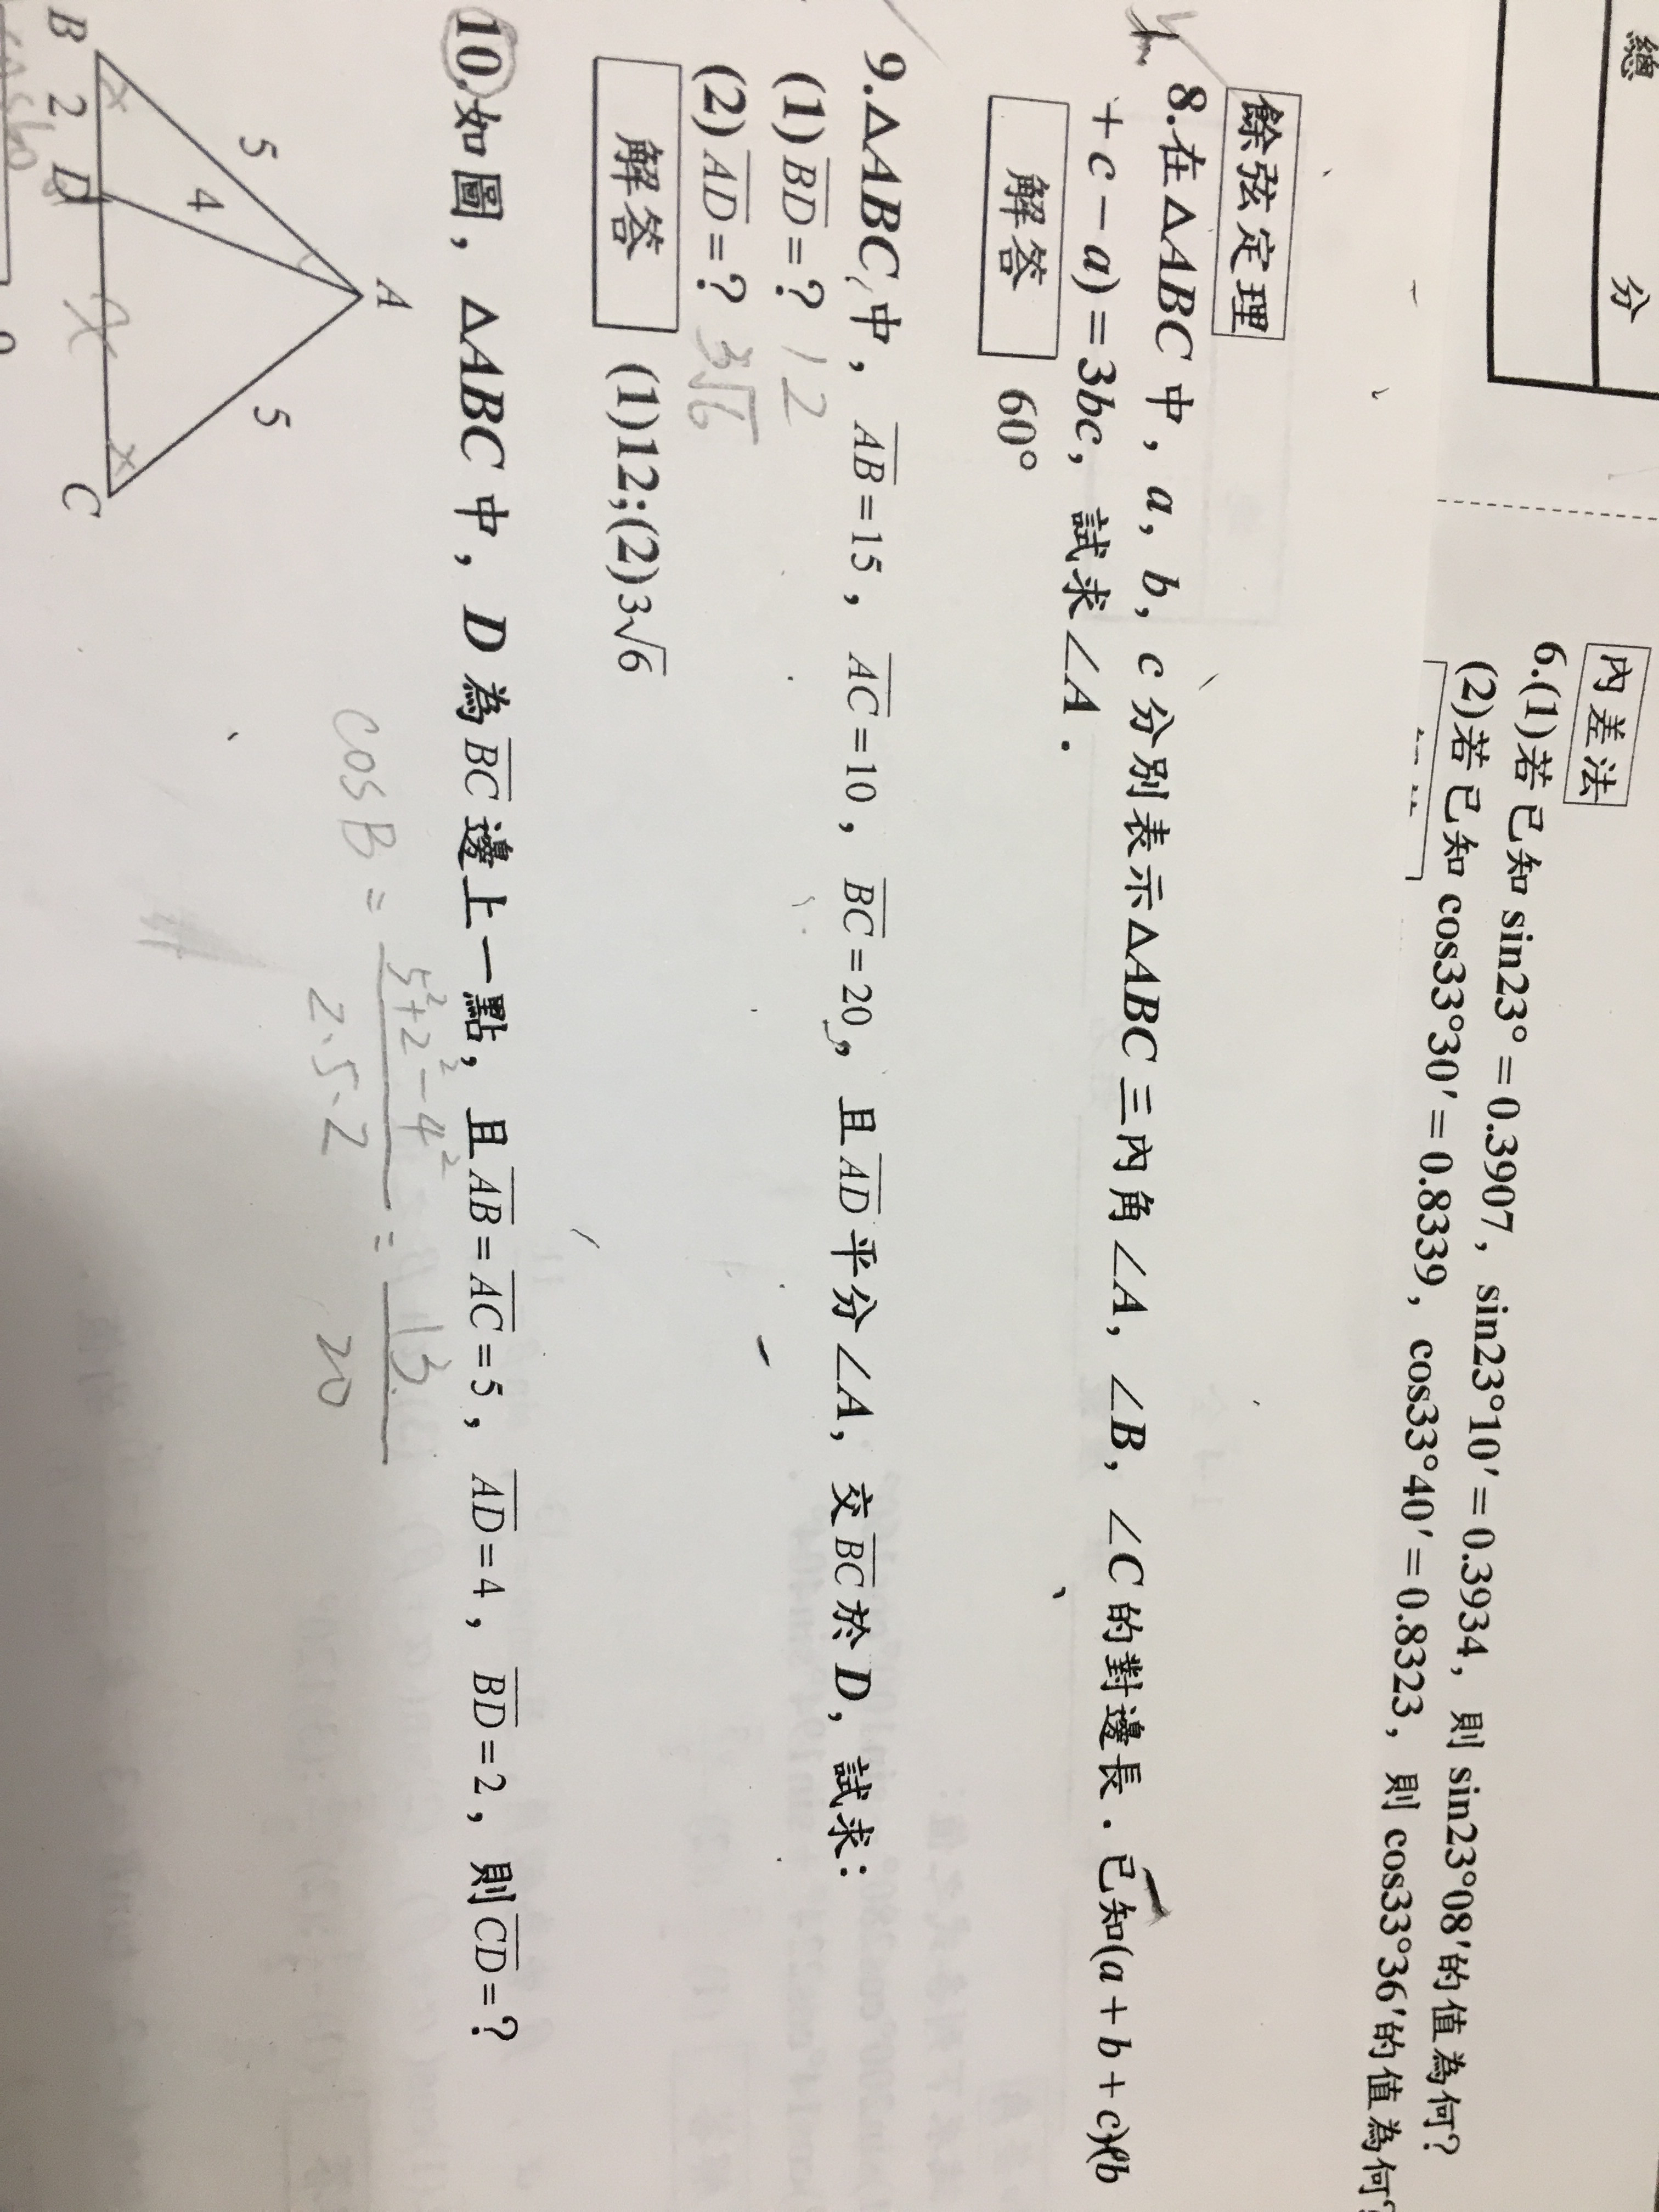 總 分
內差法
6.(1)若已知 sin23°=0.3907，sin23°10′=0.3934，則 sin23°08′的值為何？
(2)若已知 cos33°30′=0.8339，cos33°40′=0.8323，則 cos33°36′的值為何？
餘弦定理
8.在△ABC 中，a，b，c 分別表示△ABC 三內角∠A，∠B，∠C 的對邊長．已知(a+b+c)(b
+c−a)=3bc，試求∠A．
解答 60°
9.△ABC 中，AB=15，AC=10，BC=20，且AD平分∠A，交BC於 D，試求：
(1)BD=？ 12
(2)AD=？ 3√6
解答 (1)12;(2)3√6
10.如圖，△ABC 中，D 為BC邊上一點，且AB=AC=5，AD=4，BD=2，則CD=？
A
5 4 5
B 2 D x C
cosB = 5²+2²−4² / 2·5·2 = 13 / 20